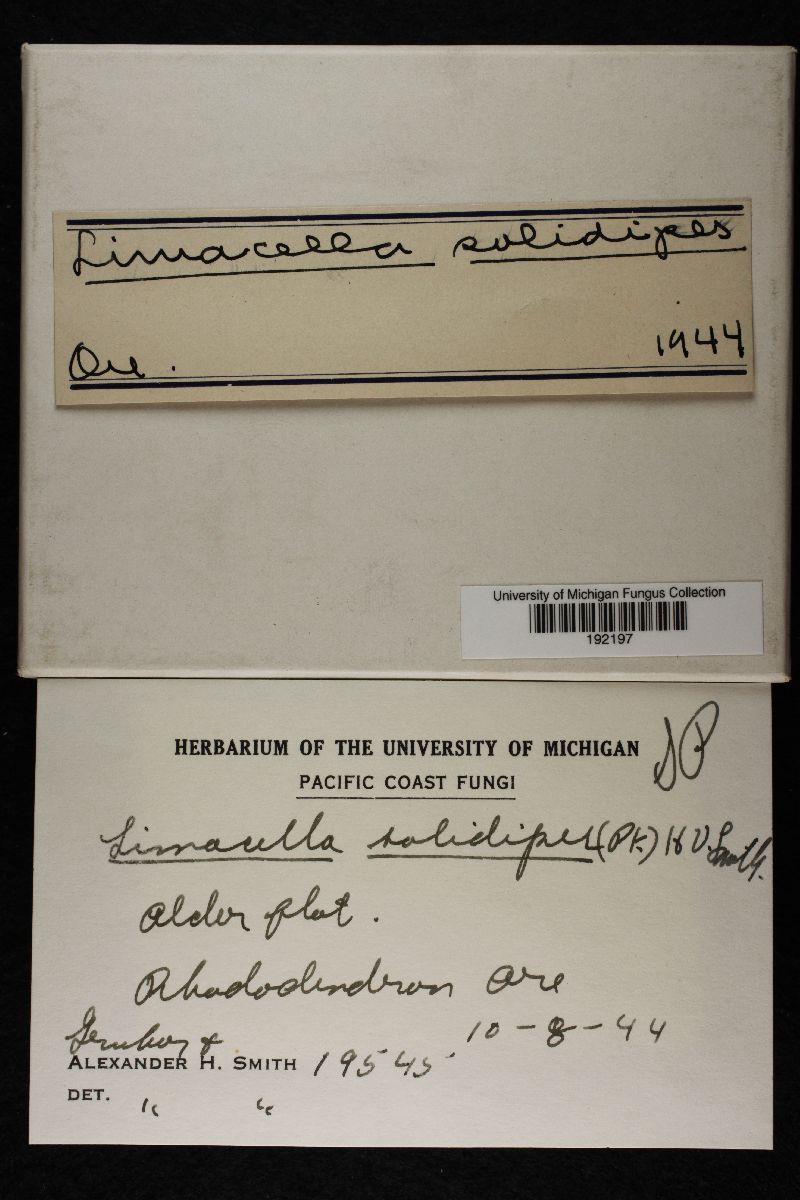 Limacella solidipes
Ore. 1944
University of Michigan Fungus Collection
192197
HERBARIUM OF THE UNIVERSITY OF MICHIGAN
PACIFIC COAST FUNGI
SP
Limacella solidipes (Pk.) H V. Smith.
Alder flat.
Rhododendron Ore
10-8-44
Gruber &
ALEXANDER H. SMITH 19545
DET. " "